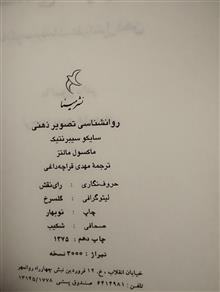 نشر سینا
روانشناسی تصویر ذهنی
سایکو سیبرنتیک
ماکسول مالتز
ترجمۀ مهدی قراچه‌داغی
حروف‌نگاری : رای‌نقش
لیتوگرافی : گلسرخ
چاپ : نوبهار
صحافی : شکیب
چاپ دهم : ۱۳۷۵
تیراژ : ۳۰۰۰ نسخه
خیابان انقلاب، خ. ۱۲ فروردین نبش چهارراه روانمهر
تلفن: ۶۴۱۴۹۸۱ صندوق پستی ۱۳۱۴۵/۱۷۷۸